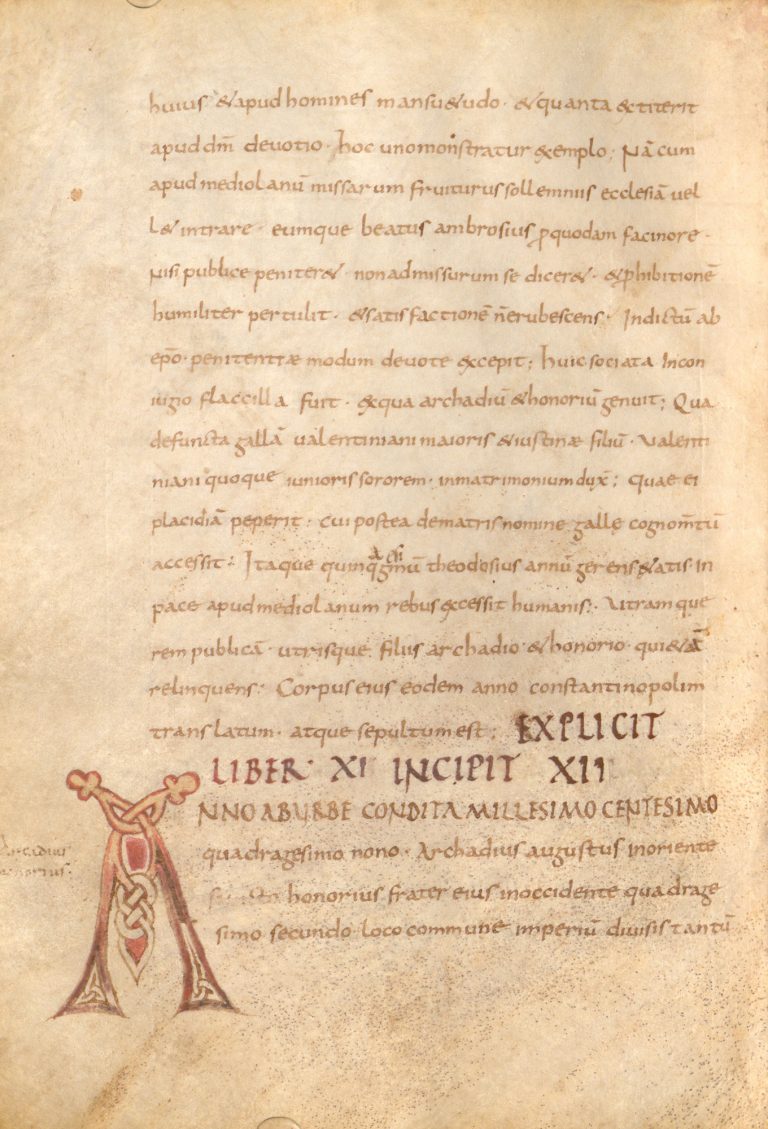 huius & apud homines mansu&udo · & quanta extiterit
apud dm̄ devotio · hoc uno monstratur exemplo; Nā cum
apud mediolanū missarum fruiturus sollemniis ecclesiā vel
l& intrare · eumque beatus ambrosius ꝓ quodam facinore ·
Nisi publice penitere& · non admissurum se dicer& · & ꝓhibitionē
humiliter pertulit · & satisfactionē n̄ erubescens · Indictū ab
epō · penitentiae modum devote excepit; huic sociata In con
iugio flaccilla fuit · ex qua archadiū & honoriū genuit; Qua
defuncta gallā valentiniani maioris & iustinae filiā · valenti
niani quoque iunioris sororem · in matrimonium dux̄; Quae ei
placidiā peperit · cui postea de matris nomine galle cognom̄tū
accessit; Itaque theodosius annū gerens &atis · In
pace apud mediolanum rebus excessit humanis; Utramque
rem publicā · utrisque filiis archadio & honorio qui&ā
relinquens; Corpus eius eodem anno constantinopolim
translatum · atque sepultum est; EXPLICIT
LIBER · XI INCIPIT XII
ANNO AB URBE CONDITA MILLESIMO CENTESIMO
quadragesimo nono · Archadius augustus in oriente
honorius frater eius in occidente quadrage
simo secundo loco commune imperiū divisis tantū